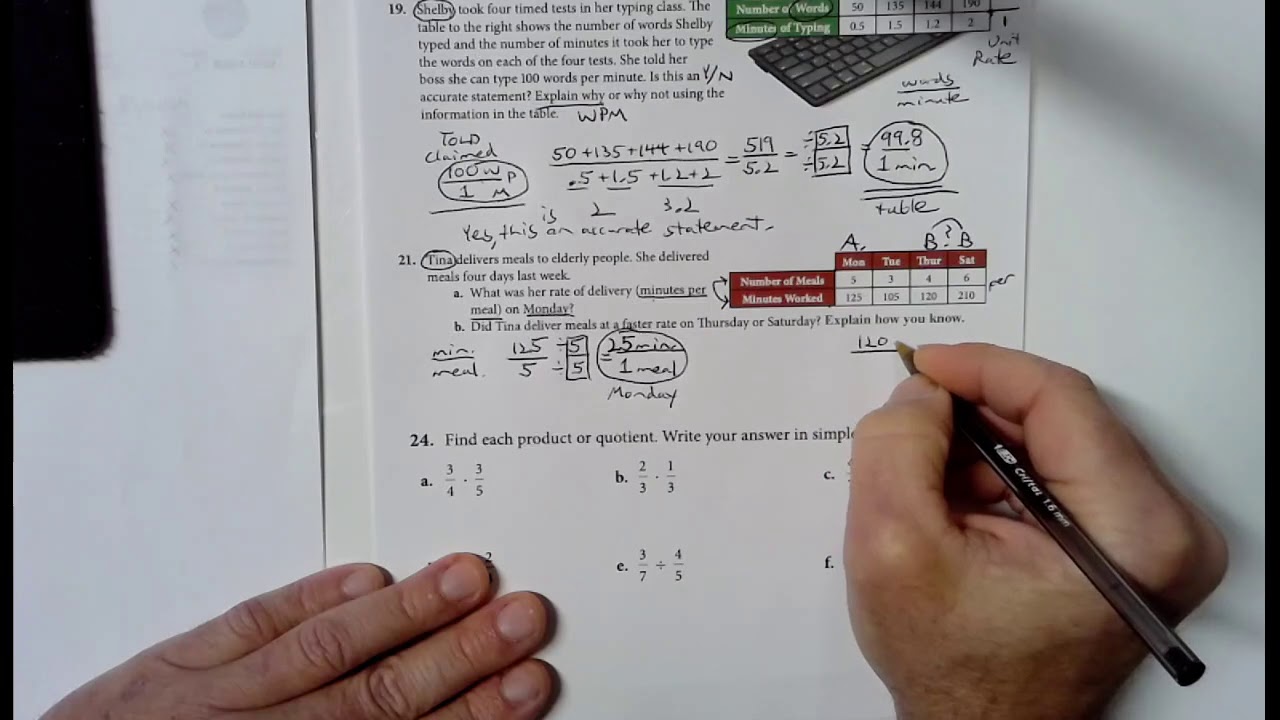 19. Shelby took four timed tests in her typing class. The
table to the right shows the number of words Shelby
typed and the number of minutes it took her to type
the words on each of the four tests. She told her
boss she can type 100 words per minute. Is this an Y/N
accurate statement? Explain why or why not using the
information in the table. WPM
Number of Words 50 135 144 190
Minutes of Typing 0.5 1.5 1.2 2 1
Unit
Rate
words
minute
TOLD
claimed
100 W P
1 M
50+135+144+190 = 519 = ÷5.2 = 99.8
.5+1.5+1.2+2 5.2 ÷5.2 1 min
2 3.2
table
is
Yes, this an accurate statement.
A. B ? B
21. Tina delivers meals to elderly people. She delivered
meals four days last week.
a. What was her rate of delivery (minutes per
meal) on Monday?
b. Did Tina deliver meals at a faster rate on Thursday or Saturday? Explain how you know.
Mon Tue Thur Sat
Number of Meals 5 3 4 6 per
Minutes Worked 125 105 120 210
min. 125 ÷5 = 25 min. 120
meal. 5 ÷5 1 meal
Monday
24. Find each product or quotient. Write your answer in simple
a. 3/4 · 3/5
b. 2/3 · 1/3
c.
e. 3/7 ÷ 4/5
f.
BIC Cristal 1.6 mm